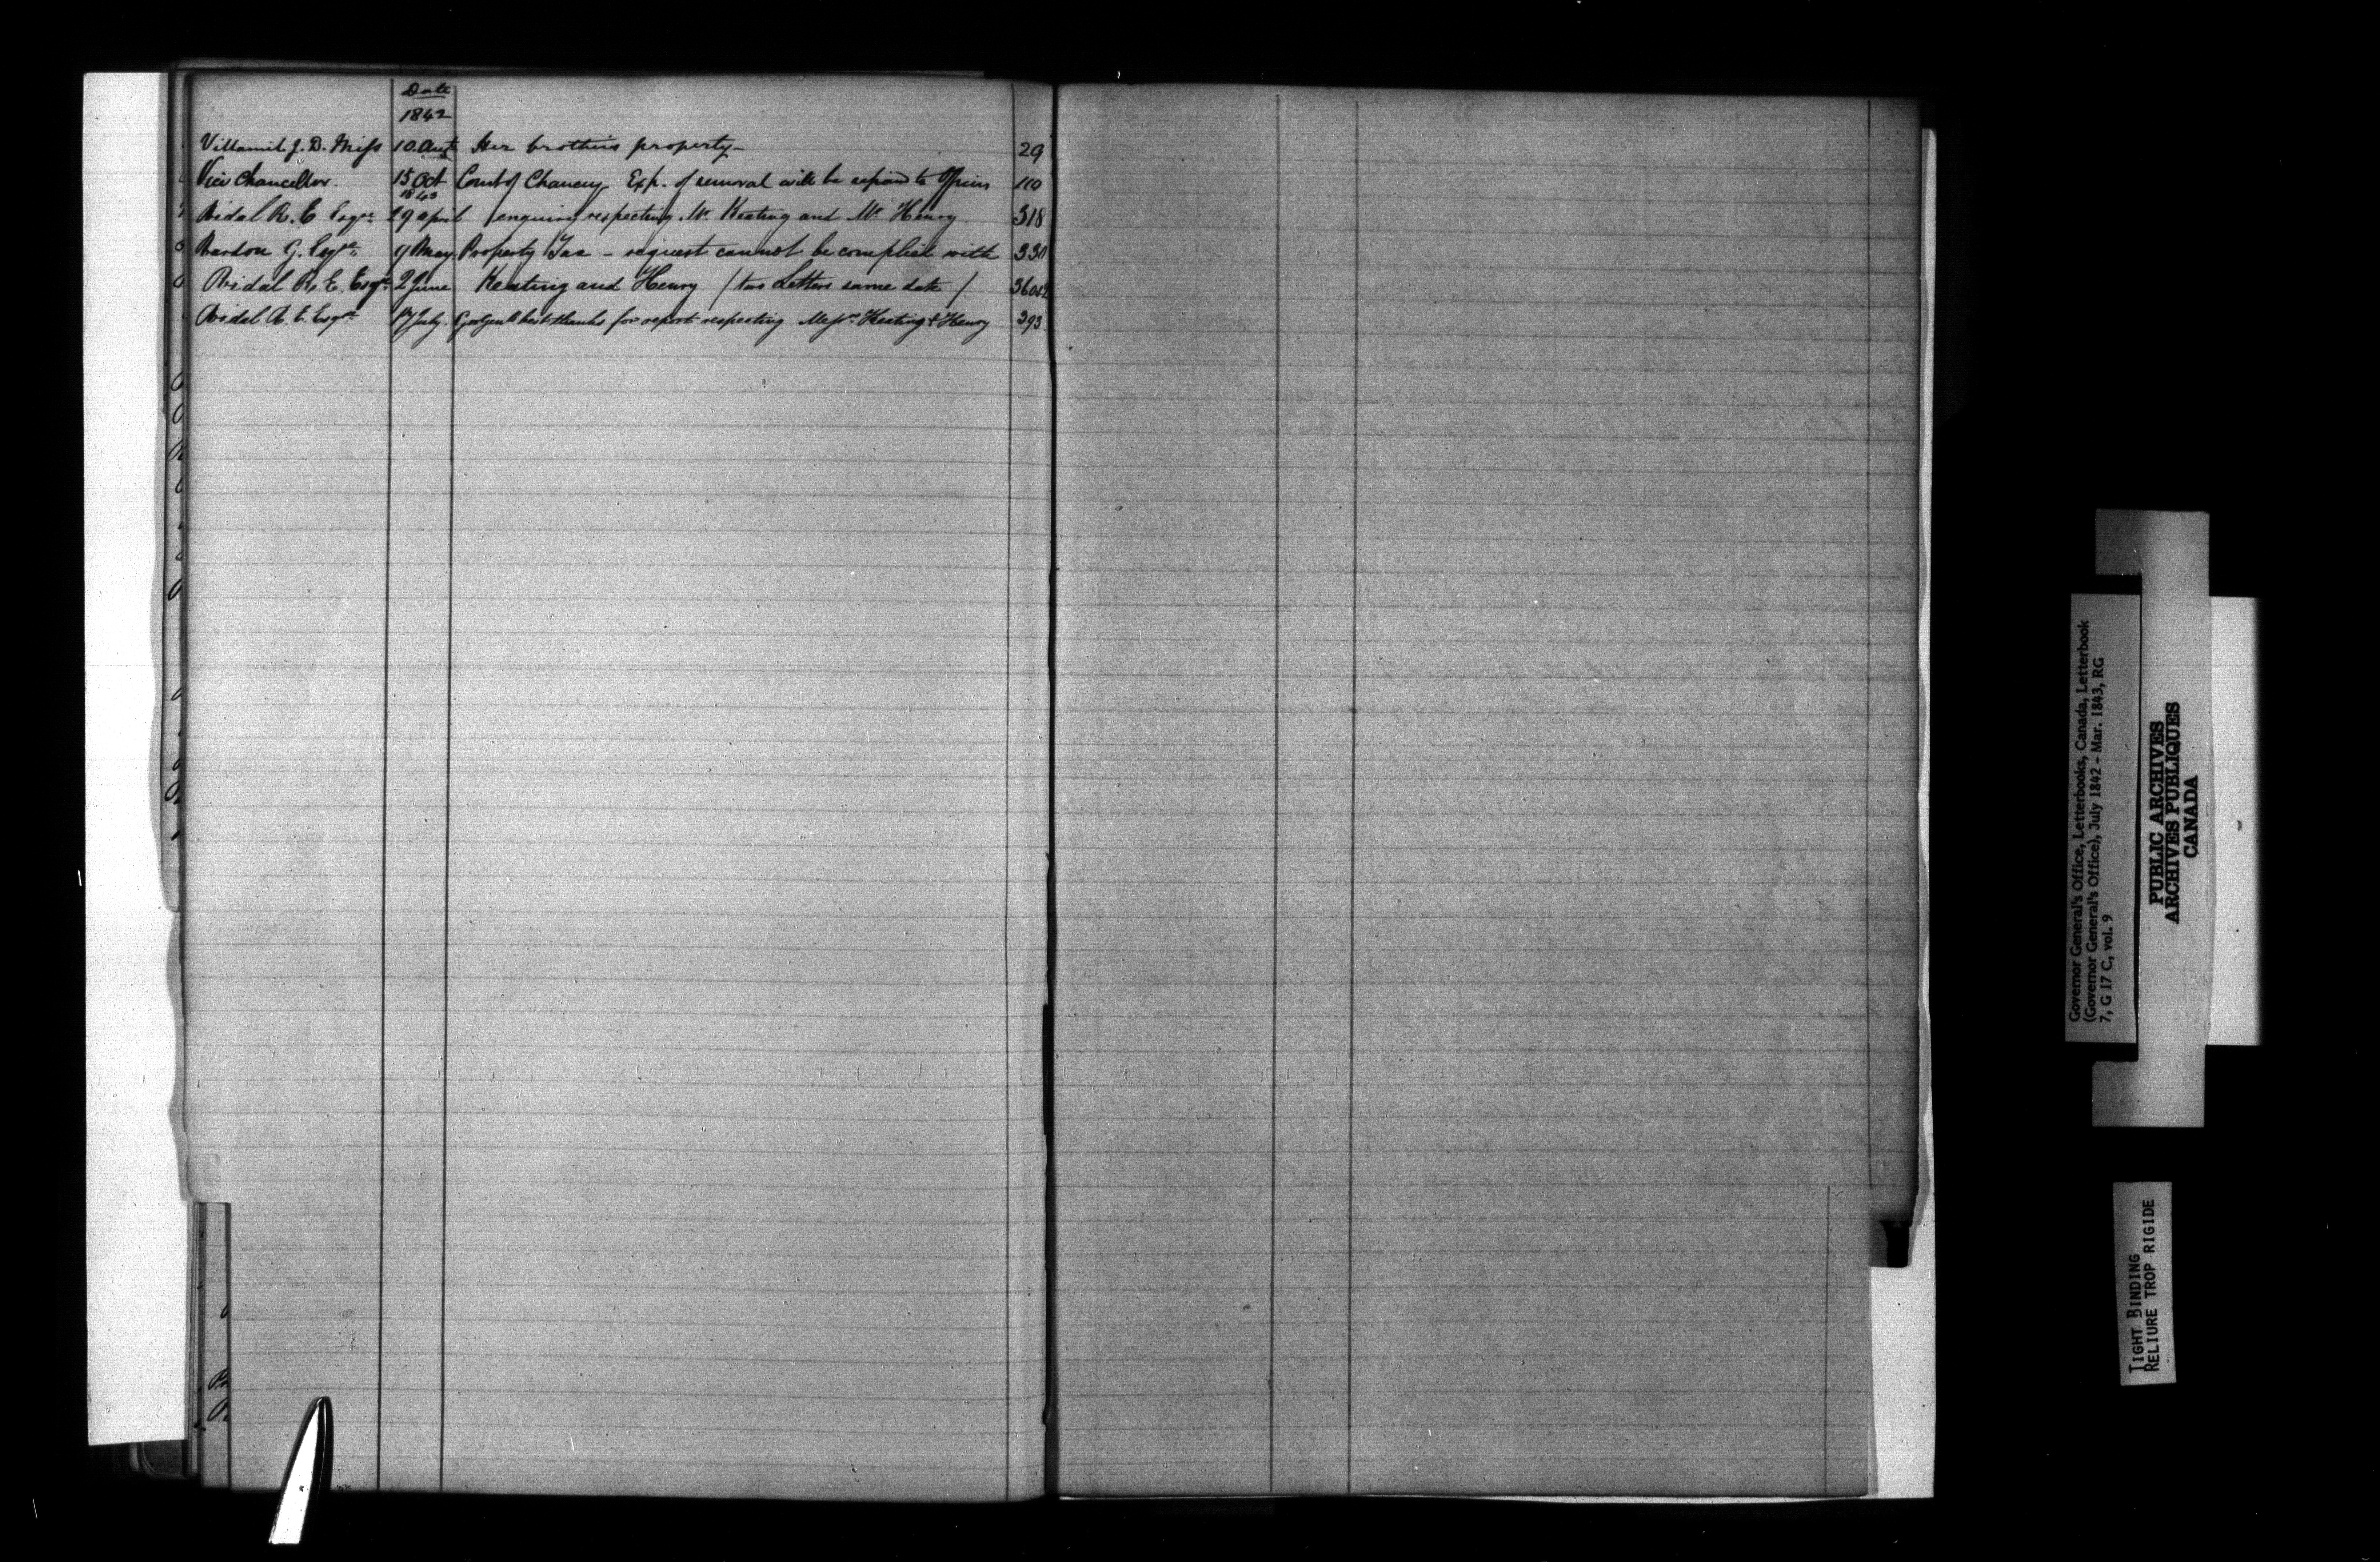 Date
1842
Villamil J. D. Miss 10 Augt Her brothers property - 29
Vice Chancellor. 15 Oct Court of Chancery Exp. of removal will be repaid to Officers 110
1843
Vidal R. E Esqre 29 April enquiry respecting Mr Keating and Mr Henry 318
Vardon G. Esqre 9 May Property Tax - request cannot be complied with 330
Vidal R. E. Esqre 2 June Keating and Henry / two Letters same date / 360
Vidal R. E. Esqre July best thanks for report respecting Messrs Keating & Henry 393
Governor General's Office, Letterbooks, Canada, Letterbook
(Governor General's Office), July 1842 - Mar. 1843, RG
7, G 17 C, vol. 9
PUBLIC ARCHIVES
ARCHIVES PUBLIQUES
CANADA
TIGHT BINDING
RELIURE TROP RIGIDE